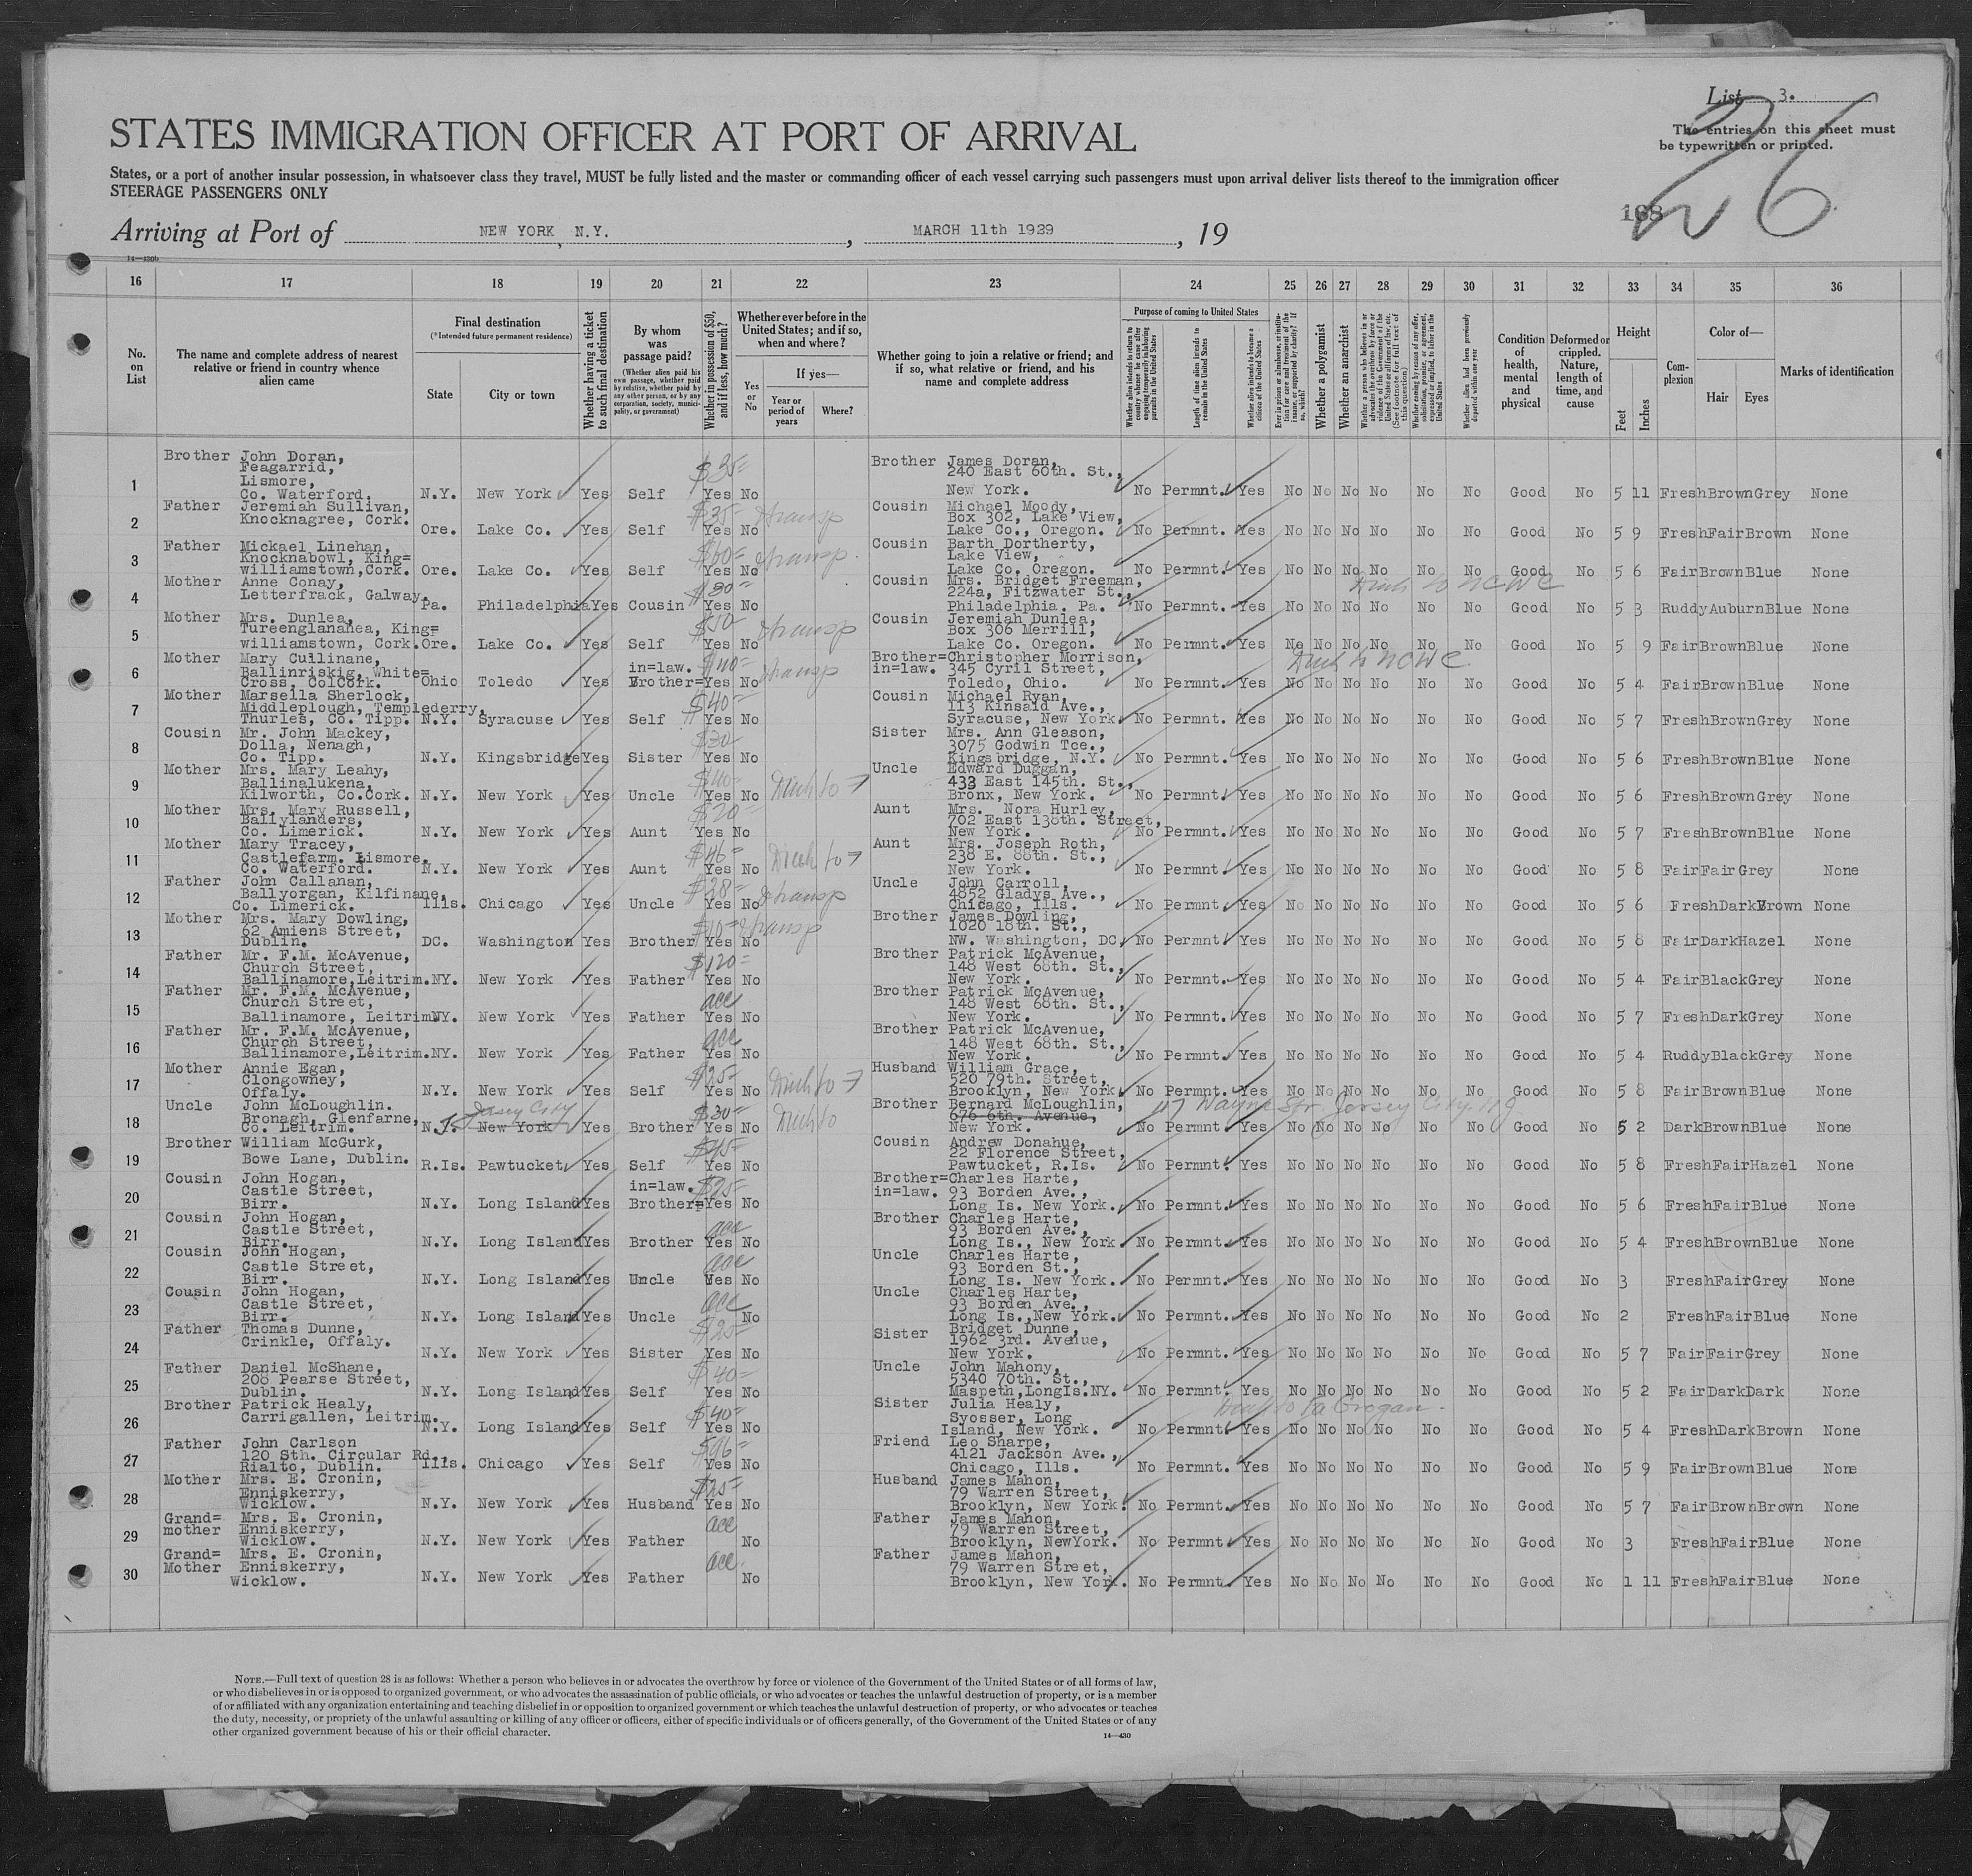 List 3.
The entries on this sheet must
be typewritten or printed.
26
168
STATES IMMIGRATION OFFICER AT PORT OF ARRIVAL
States, or a port of another insular possession, in whatsoever class they travel, MUST be fully listed and the master or commanding officer of each vessel carrying such passengers must upon arrival deliver lists thereof to the immigration officer
STEERAGE PASSENGERS ONLY
Arriving at Port of NEW YORK, N.Y. , MARCH 11th 1929 , 19
14—430b
16 17 18 19 20 21 22 23 24 25 26 27 28 29 30 31 32 33 34 35 36
No. on List
The name and complete address of nearest relative or friend in country whence alien came
Final destination
(*Intended future permanent residence)
State
City or town
Whether having a ticket to such final destination
By whom was passage paid?
(Whether alien paid his own passage, whether paid by relative, whether paid by any other person, or by any corporation, society, municipality, or government)
Whether in possession of $50, and if less, how much?
Whether ever before in the United States; and if so, when and where?
Yes or No
If yes—
Year or period of years
Where?
Whether going to join a relative or friend; and if so, what relative or friend, and his name and complete address
Purpose of coming to United States
Whether alien intends to return to country whence he came after engaging temporarily in laboring pursuits in the United States
Length of time alien intends to remain in the United States
Whether alien intends to become a citizen of the United States
Ever in prison or almshouse, or institution for care and treatment of the insane, or supported by charity? If so, which?
Whether a polygamist
Whether an anarchist
Whether a person who believes in or advocates the overthrow by force or violence of the Government of the United States or all forms of law, etc. (See footnote for full text of this question)
Whether coming by reason of any offer, solicitation, promise, or agreement, expressed or implied, to labor in the United States
Whether alien had been previously deported within one year
Condition of health, mental and physical
Deformed or crippled. Nature, length of time, and cause
Height
Feet
Inches
Complexion
Color of—
Hair
Eyes
Marks of identification
1 Brother John Doran, Feagarrid, Lismore, Co. Waterford. N.Y. New York Yes Self $35= Yes No Brother James Doran, 240 East 60th. St., New York. No Permnt. Yes No No No No No No Good No 5 11 Fresh Brown Grey None
2 Father Jeremiah Sullivan, Knocknagree, Cork. Ore. Lake Co. Yes Self $35 Yes No Cousin Michael Moody, Box 302, Lake View, Lake Co., Oregon. No Permnt. Yes No No No No No No Good No 5 9 Fresh Fair Brown None
3 Father Mickael Linehan, Knocknabowl, King= williamstown,Cork. Ore. Lake Co. Yes Self $60= Yes No Cousin Barth Dortherty, Lake View, Lake Co. Oregon. No Permnt. Yes No No No No No No Good No 5 6 Fair Brown Blue None
4 Mother Anne Conay, Letterfrack, Galway. Pa. Philadelphia Yes Cousin $30= Yes No Cousin Mrs. Bridget Freeman, 224a, Fitzwater St., Philadelphia. Pa. No Permnt. Yes No No No No No No Good No 5 3 Ruddy Auburn Blue None
5 Mother Mrs. Dunlea, Tureenglananea, King= williamstown, Cork. Ore. Lake Co. Yes Self $50= Yes No Cousin Jeremiah Dunlea, Box 306 Merrill, Lake Co. Oregon. No Permnt. Yes No No No No No No Good No 5 9 Fair Brown Blue None
6 Mother Mary Cullinane, Ballinriskig, White= Cross, CoLCork. Ohio Toledo Yes in=law. Brother= $40= Yes No Brother= in=law. Christopher Morrison, 345 Cyril Street, Toledo, Ohio. No Permnt. Yes No No No No No No Good No 5 4 Fair Brown Blue None
7 Mother Marsella Sherlock, Middleplough, Templederry, Thurles, Co. Tipp. N.Y. Syracuse Yes Self $40= Yes No Cousin Michael Ryan, 113 Kinsaid Ave., Syracuse, New York No Permnt. Yes No No No No No No Good No 5 7 Fresh Brown Grey None
8 Cousin Mr. John Mackey, Dolla, Nenagh, Co. Tipp. N.Y. Kingsbridge Yes Sister $30 Yes No Sister Mrs. Ann Gleason, 3075 Godwin Tce., Kingsbridge, N.Y. No Permnt. Yes No No No No No No Good No 5 6 Fresh Brown Blue None
9 Mother Mrs. Mary Leahy, Ballinalukena, Kilworth, Co.Cork. N.Y. New York Yes Uncle $40= Yes No Uncle Edward Duggan, 433 East 145th. St., Bronx, New York. No Permnt. Yes No No No No No No Good No 5 6 Fresh Brown Grey None
10 Mother Mrs. Mary Russell, Ballylanders, Co. Limerick. N.Y. New York Yes Aunt $20= Yes No Aunt Mrs. Nora Hurley, 702 East 138th. Street, New York. No Permnt. Yes No No No No No No Good No 5 7 Fresh Brown Blue None
11 Mother Mary Tracey, Castlefarm. Lismore. Co. Waterford. N.Y. New York Yes Aunt $46= Yes No Aunt Mrs. Joseph Roth, 238 E. 88th. St., New York. No Permnt. Yes No No No No No No Good No 5 8 Fair Fair Grey None
12 Father John Callanan, Ballyorgan, Kilfinane, Co. Limerick. Ills. Chicago Yes Uncle $28= Yes No Uncle John Carroll, 4852 Gladys Ave., Chicago, Ills. No Permnt. Yes No No No No No No Good No 5 6 Fresh Dark Brown None
13 Mother Mrs. Mary Dowling, 62 Amiens Street, Dublin. DC. Washington Yes Brother $10= Yes No Brother James Dowling, 1020 18th. St., NW. Washington, DC. No Permnt. Yes No No No No No No Good No 5 8 Fair Dark Hazel None
14 Father Mr. F.M. McAvenue, Church Street, Ballinamore,Leitrim. NY. New York Yes Father $120= Yes No Brother Patrick McAvenue, 148 West 68th. St., New York. No Permnt. Yes No No No No No No Good No 5 4 Fair Black Grey None
15 Father Mr. F.M. McAvenue, Church Street, Ballinamore, Leitrim NY. New York Yes Father acc Yes No Brother Patrick McAvenue, 148 West 68th. St., New York. No Permnt. Yes No No No No No No Good No 5 7 Fresh Dark Grey None
16 Father Mr. F.M. McAvenue, Church Street, Ballinamore,Leitrim. NY. New York Yes Father acc Yes No Brother Patrick McAvenue, 148 West 68th. St., New York. No Permnt. Yes No No No No No No Good No 5 4 Ruddy Black Grey None
17 Mother Annie Egan, Clongowney, Offaly. N.Y. New York Yes Self $25= Yes No Husband William Grace, 520 79th. Street, Brooklyn, New York No Permnt. Yes No No No No No No Good No 5 8 Fair Brown Blue None
18 Uncle John McLoughlin. Bronagh, Glenfarne, Co. Leitrim. N.J. Jersey City New York Yes Brother $30= Yes No Brother Bernard McLoughlin, 676 6th. Avenue, New York. 117 Wayne Str. Jersey City NJ No Permnt. Yes No No No No No No Good No 5 2 Dark Brown Blue None
19 Brother William McGurk, Bowe Lane, Dublin. R.Is. Pawtucket Yes Self $45= Yes No Cousin Andrew Donahue, 22 Florence Street, Pawtucket, R.Is. No Permnt. Yes No No No No No No Good No 5 8 Fresh Fair Hazel None
20 Cousin John Hogan, Castle Street, Birr. N.Y. Long Island Yes in=law. Brother= $95= Yes No Brother= in=law. Charles Harte, 93 Borden Ave., Long Is. New York. No Permnt. Yes No No No No No No Good No 5 6 Fresh Fair Blue None
21 Cousin John Hogan, Castle Street, Birr. N.Y. Long Island Yes Brother acc Yes No Brother Charles Harte, 93 Borden Ave., Long Is., New York. No Permnt. Yes No No No No No No Good No 5 4 Fresh Brown Blue None
22 Cousin John Hogan, Castle Street, Birr. N.Y. Long Island Yes Uncle acc Yes No Uncle Charles Harte, 93 Borden St., Long Is. New York. No Permnt. Yes No No No No No No Good No 3 Fresh Fair Grey None
23 Cousin John Hogan, Castle Street, Birr. N.Y. Long Island Yes Uncle acc No Uncle Charles Harte, 93 Borden Ave., Long Is.,New York. No Permnt. Yes No No No No No No Good No 2 Fresh Fair Blue None
24 Father Thomas Dunne, Crinkle, Offaly. N.Y. New York Yes Sister $25= Yes No Sister Bridget Dunne, 1962 3rd. Avenue, New York. No Permnt. Yes No No No No No No Good No 5 7 Fair Fair Grey None
25 Father Daniel McShane, 208 Pearse Street, Dublin. N.Y. Long Island Yes Self $40= Yes No Uncle John Mahony, 5340 70th. St., Maspeth,LongIs.NY. No Permnt. Yes No No No No No No Good No 5 2 Fair Dark Dark None
26 Brother Patrick Healy, Carrigallen, Leitrim. N.Y. Long Island Yes Self $40= Yes No Sister Julia Healy, Syosser, Long Island, New York. No Permnt. Yes No No No No No No Good No 5 4 Fresh Dark Brown None
27 Father John Carlson 120 Sth. Circular Rd., Rialto, Dublin. Ills. Chicago Yes Self $96= Yes No Friend Leo Sharpe, 4121 Jackson Ave., Chicago, Ills. No Permnt. Yes No No No No No No Good No 5 9 Fair Brown Blue None
28 Mother Mrs. E. Cronin, Enniskerry, Wicklow. N.Y. New York Yes Husband $25= Yes No Husband James Mahon, 79 Warren Street, Brooklyn, New York. No Permnt. Yes No No No No No No Good No 5 7 Fair Brown Brown None
29 Grand= mother Mrs. E. Cronin, Enniskerry, Wicklow. N.Y. New York Yes Father acc No Father James Mahon, 79 Warren Street, Brooklyn, NewYork. No Permnt. Yes No No No No No No Good No 3 Fresh Fair Blue None
30 Grand= Mother Mrs. E. Cronin, Enniskerry, Wicklow. N.Y. New York Yes Father acc. No Father James Mahon, 79 Warren Street, Brooklyn, New York. No Permnt. Yes No No No No No No Good No 1 11 Fresh Fair Blue None
NOTE.—Full text of question 28 is as follows: Whether a person who believes in or advocates the overthrow by force or violence of the Government of the United States or of all forms of law,
or who disbelieves in or is opposed to organized government, or who advocates the assassination of public officials, or who advocates or teaches the unlawful destruction of property, or is a member
of or affiliated with any organization entertaining and teaching disbelief in or opposition to organized government or which teaches the unlawful destruction of property, or who advocates or teaches
the duty, necessity, or propriety of the unlawful assaulting or killing of any officer or officers, either of specific individuals or of officers generally, of the Government of the United States or of any
other organized government because of his or their official character.
14—430